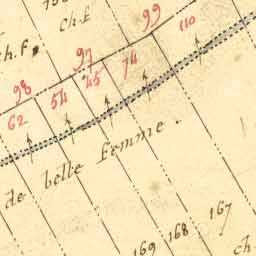 ch.f
ch.f.
99
110
97
74
45
98
54
62
de belle femme.
167
168
169
ch.